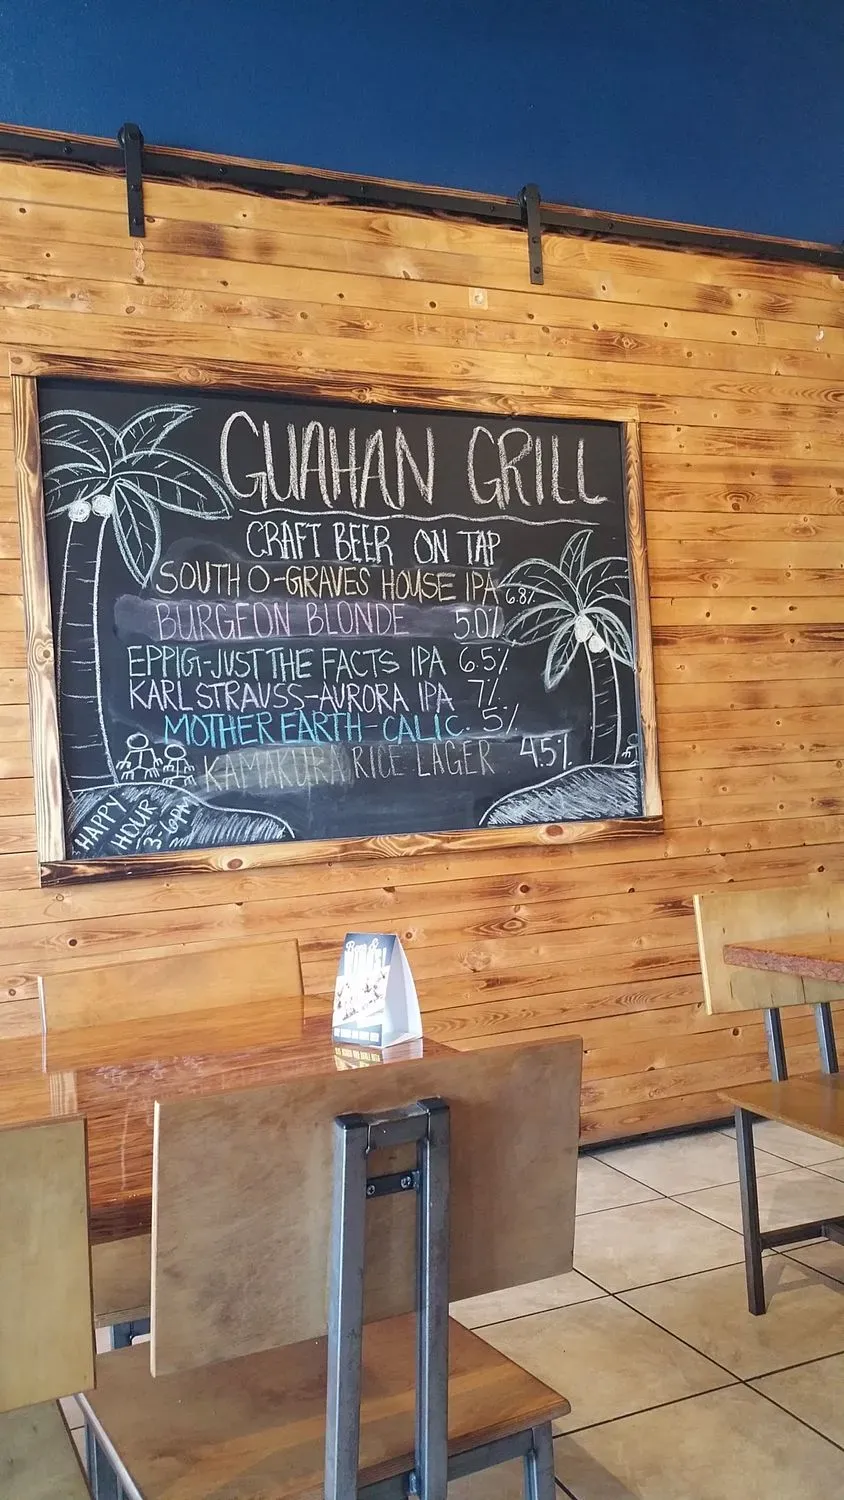 GUAHAN GRILL
CRAFT BEER ON TAP
SOUTH O-GRAVES HOUSE IPA 6.8%
BURGEON BLONDE 5.0%
EPPIG-JUST THE FACTS IPA 6.5%
KARL STRAUSS-AURORA IPA 7%
MOTHER EARTH-CALI C. 5%
KAMAKURA RICE LAGER 4.5%
HAPPY
HOUR
3-6PM